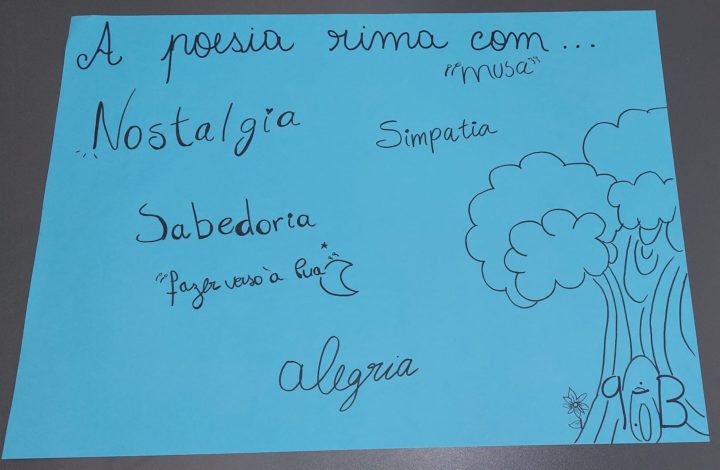 A poesia rima com...
"musa"
Nostalgia
Simpatia
Sabedoria
"fazer verso à lua"
alegria
9º B